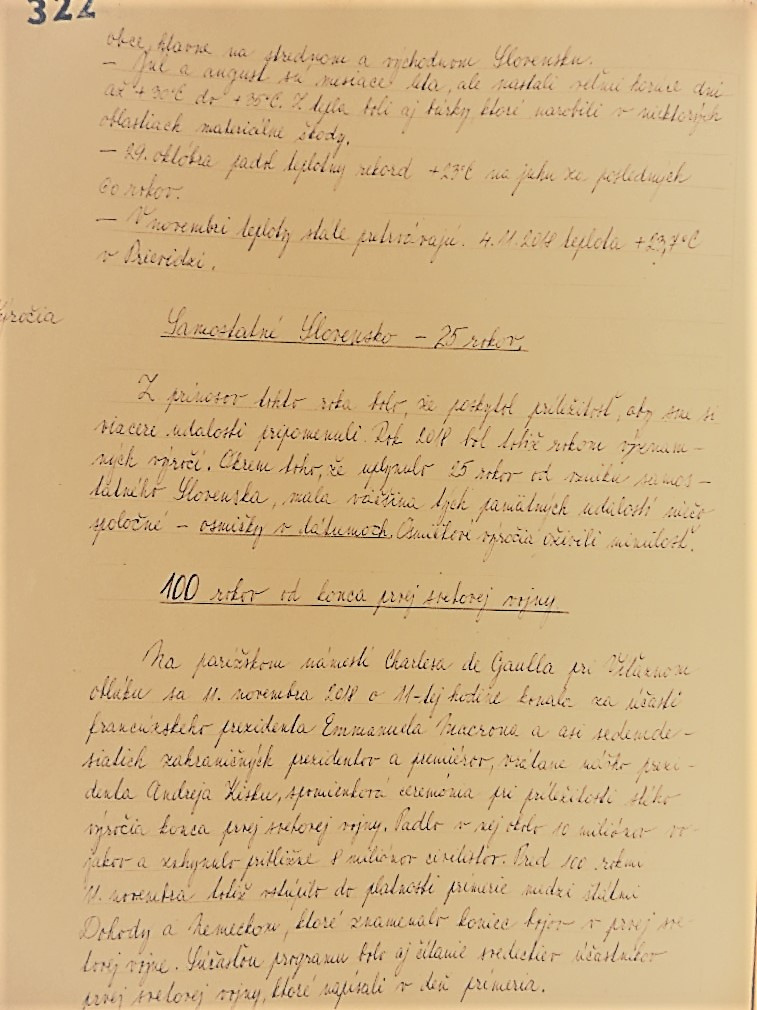 322
obce, hlavne na strednom a východnom Slovensku.
– Júl a august sú mesiace leta, ale nastali veľmi horúce dni
až +30°C do +35°C. Z tepla boli aj búrky ktoré narobili v niektorých
oblastiach materiálne škody.
– 29. októbra padol teplotný rekord +23°C na juhu za posledných
60 rokov.
– V novembri teploty stále pretrvávajú. 4.11.2018 teplota +23,7°C
v Prievidzi.
Výročia
Samostatné Slovensko – 25 rokov.
Z prínosov tohto roka bolo, že poskytol príležitosť, aby sme si
viaceré udalosti pripomenuli. Rok 2018 bol totiž rokom význam–
ných výročí. Okrem toho, že uplynulo 25 rokov od vzniku samos–
tatného Slovenska, mala väčšina tých pamätných udalostí niečo
spoločné – osmičky v dátumoch. Osmičkové výročia oživili minulosť.
100 rokov od konca prvej svetovej vojny
Na parížskom námestí Charlesa de Gaulla pri Víťaznom
oblúku sa 11. novembra 2018 o 11-tej hodine konala za účasti
francúzskeho prezidenta Emmanuela Macrona a asi sedemde–
siatich zahraničných prezidentov a premiérov, vrátane nášho prezi–
denta Andreja Kisku, spomienková ceremónia pri príležitosti stého
výročia konca prvej svetovej vojny. Padlo v nej okolo 10 miliónov vo–
jakov a zahynulo približne 8 miliónov civilistov. Pred 100 rokmi
11. novembra totiž vstúpilo do platnosti prímerie medzi štátmi
Dohody a Nemeckom, ktoré znamenalo koniec bojov v prvej sve–
tovej vojne. Súčasťou programu bolo aj čítanie svedectiev účastníkov
prvej svetovej vojny, ktoré napísali v deň prímeria.